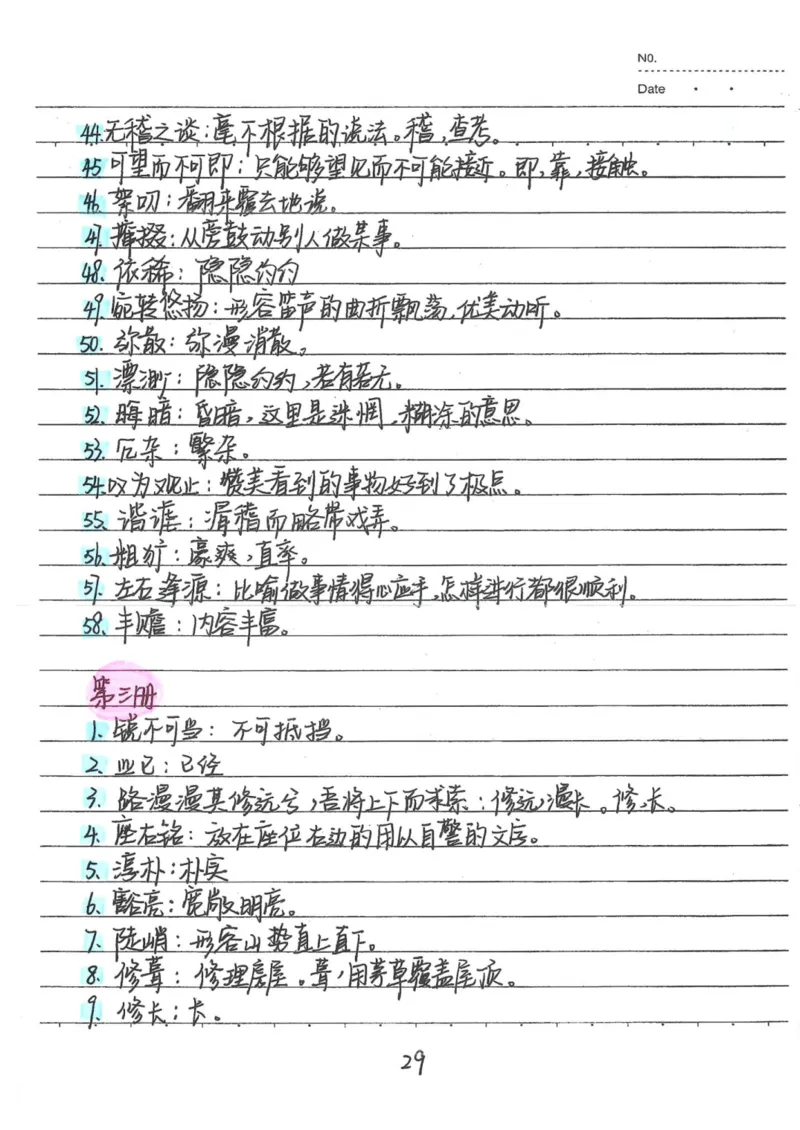 NO.
Date
44.无稽之谈:毫不根据的说法。稽,查考。
45 可望而不可即:只能够望见而不可能接近。即,靠,接触。
46.絮叨:翻来覆去地说。
47.撺掇:从旁鼓动别人做某事。
48.依稀:隐隐约约
49.宛转悠扬:形容笛声的曲折飘荡,优美动听。
50.弥散:弥漫消散。
51.漂渺:隐隐约约,若有若无。
52.晦暗:昏暗,这里是迷惘,糊涂的意思。
53.冗杂:繁杂。
54.叹为观止:赞美看到的事物好到了极点。
55.诙谐:滑稽而略带戏弄。
56.粗犷:豪爽,直率。
57.左右逢源:比喻做事情得心应手,怎样进行都很顺利。
58.丰赡:内容丰富。
第三册
1.锐不可当: 不可抵挡。
2.业已:已经
3.路漫漫其修远兮,吾将上下而求索:修远,漫长。修,长。
4.座右铭:放在座位右边的用以自警的文字。
5.淳朴:朴实
6.豁亮:宽敞明亮。
7.陡峭:形容山势直上直下。
8.修葺:修理房屋。葺,用茅草覆盖屋顶。
9.修长:长。
29